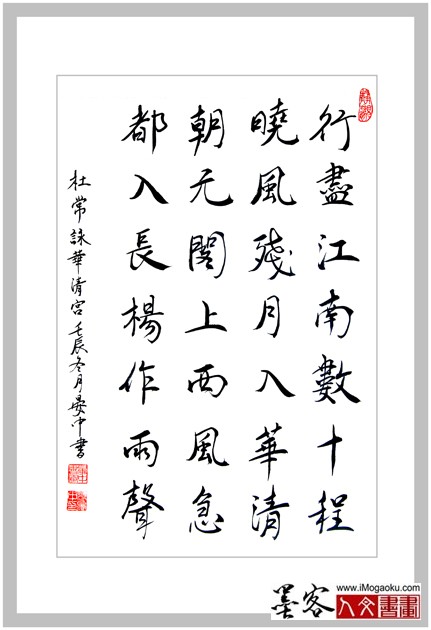 行盡江南數十程
曉風殘月入華清
朝元閣上西風急
都入長楊作雨聲
杜常詠華清宮 壬辰冬月晏中書
墨客
www.iMogaoku.com
人文書畫